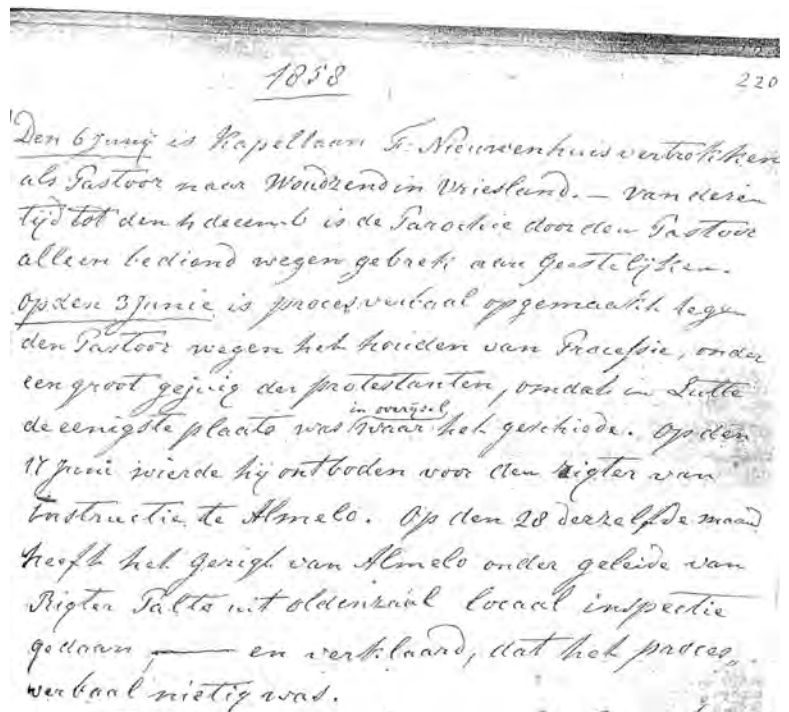 1858
220
Den 6 Junij is Kapellaan F. Nieuwenhuis vertrokken
als Pastoor naar Woudzend in Vriesland. — van deren
tijd tot den 4 decemb is de Parochie door den Pastoor
alleen bediend wegen gebrek aan Geestelijken.
Op den 3 Junie is procesverbaal opgemaakt tegen
den Pastoor wegen het houden van Processie, onder
een groot gejuig der protestanten, omdat in Lutte
de eenigste plaats was in overijsel waar het geschiede. Op den
17 Juni wierde hij ontboden voor den rigter van
Instructie te Almelo. Op den 28 derzelfde maand
heeft het Gerigt van Almelo onder geleide van
Rigter Palte uit oldenzaal locaal inspectie
gedaan, — en verklaard, dat het proces„
verbaal nietig was.